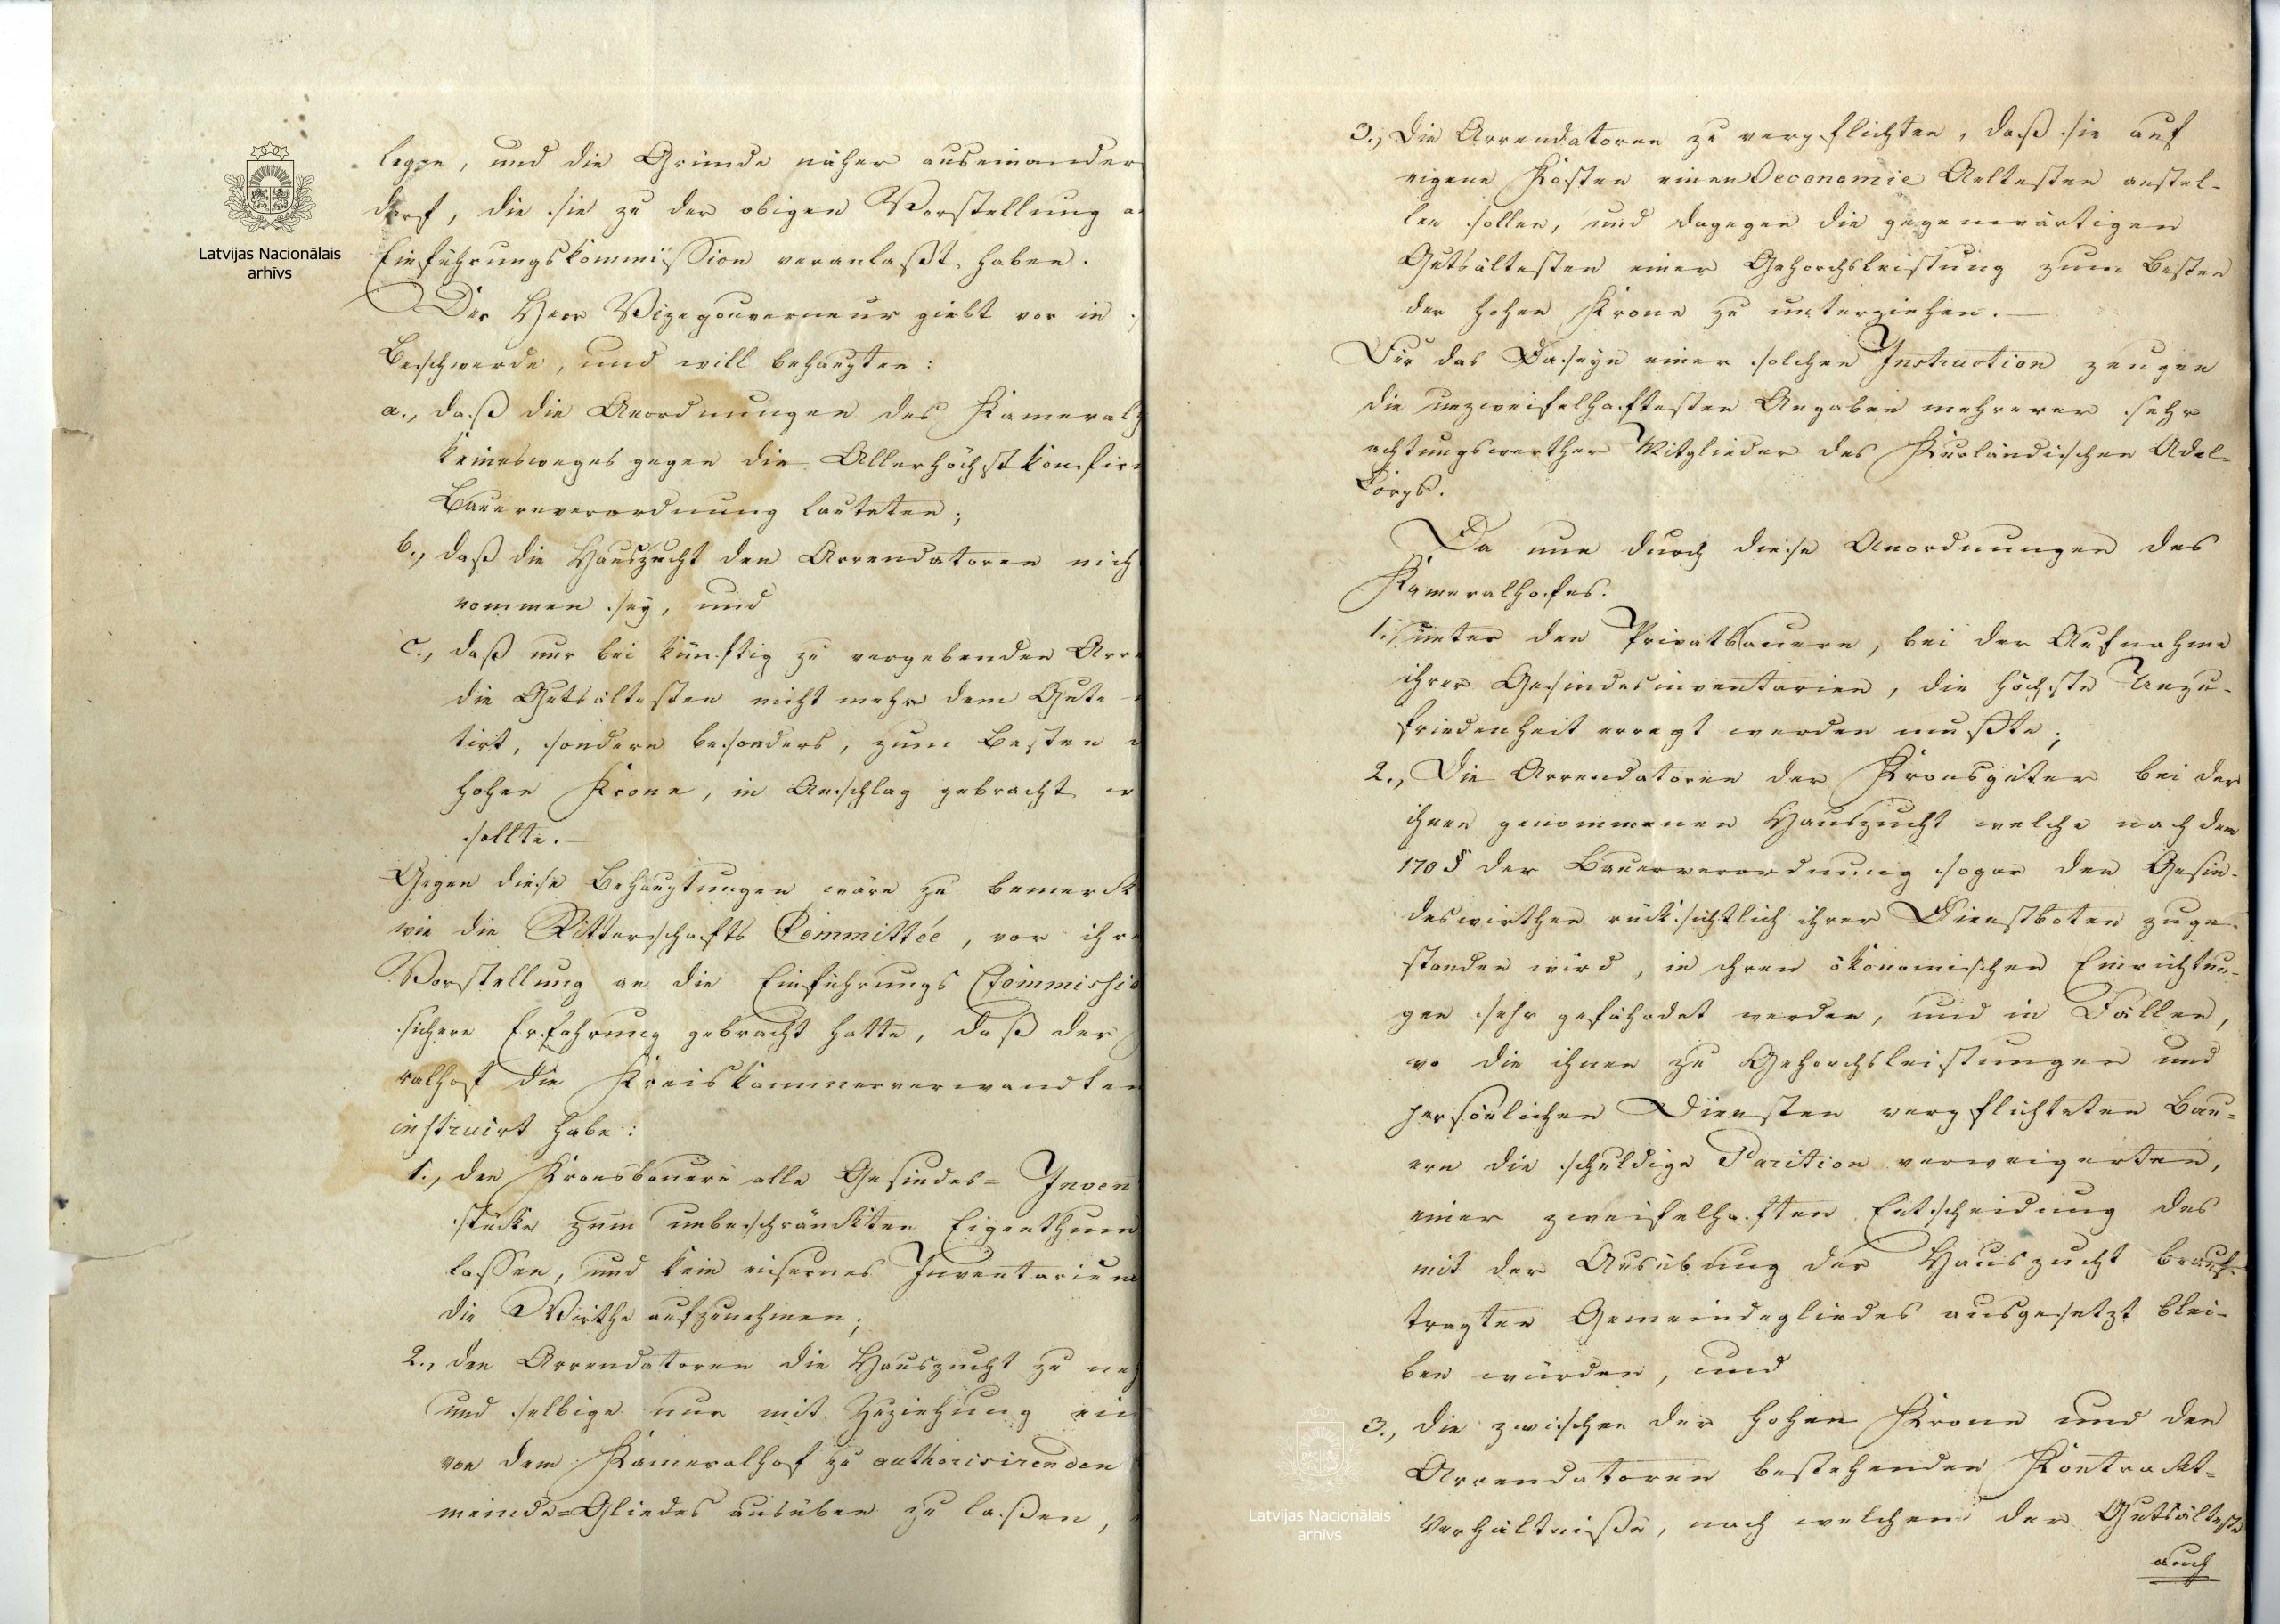 Latvijas Nacionālais
arhīvs
legge, und die Gründe näher auseinander
darf, die sie zu der obigen Vorstellung a
Einführungskommission veranlaßt haben.
Der Herr Vizegouverneur giebt vor in
Beschwerde, und will behaupten:
a., daß die Anordnungen des Kameralh
keinesweges gegen die Allerhöchst konfir
Bauernverordnung lauteten;
b., daß die Hauszucht den Arrendatoren nich
nommen sey, und
c., daß nur bei künftig zu vergebenden Arre
die Gutsältesten nicht mehr dem Gute
tirt, sondern besonders, zum Besten d
hohen Krone, in Anschlag gebracht w
sollte.—
Gegen diese Behauptungen wäre zu bemerk
wie die Ritterschafts Committée, vor ihre
Vorstellung an die Einführungs Commissio
sichere Erfahrung gebracht hatte, daß der
ralhof die Kreiskammerverwandten
instruirt habe:
1., den Kronsbauern alle Gesindes= Inven
stücke zum unbeschränkten Eigenthum
lassen, und kein eisernes Inventarium
die Wirthe aufzunehmen;
2., den Arrendatoren die Hauszucht zu neh
und selbige nur mit Zuziehung ein
von dem Kameralhof zu authorisirenden
meinde=Gliedes ausüben zu laßen,
3., Die Arrendatoren zu verpflichten, daß sie auf
eigene Kosten einen Oeconomie Aeltesten anstel-
len sollen, und dagegen die gegenwärtigen
Gutsältesten einer Gehorchsleistung zum Besten
der hohen Krone zu unterziehen.—
Für das Daseyn einer solchen Instruction zeugen
die unzweifelhaftesten Angaben mehrerer sehr
achtungswerther Mitglieder des Kurländischen Adel-
Corps.
Da nun durch diese Anordnungen des
Kameralhofes.
1., unter den Privatbauern, bei der Aufnahme
ihrer Gesindesinventarien, die höchste Unzu-
friedenheit erregt werden mußte;
2., Die Arrendatoren der Kronsgüter bei der
ihnen genommenen Hauszucht welche nach dem
170 § der Bauerverordnung sogar den Gesin-
deswirthen rücksichtlich ihrer Dienstboten zuge-
standen wird, in ihren ökonomischen Einrichtun-
gen sehr gefährdet werden, und in Fällen,
wo die ihnen zu Gehorchsleistungen und
persönlichen Diensten verpflichteten Bau=
ern die schuldige Parition verweigerten,
einer zweifelhaften Entscheidung des
mit der Ausübung der Hauszucht beauf-
tragten Gemeindegliedes ausgesetzt blei-
ben würden, und
3., die zwischen der hohen Krone und den
Arrendatoren bestehenden Kontrakt=
Verhältniße, nach welchen der Gutsälteste
auch
Latvijas Nacionālais
arhīvs